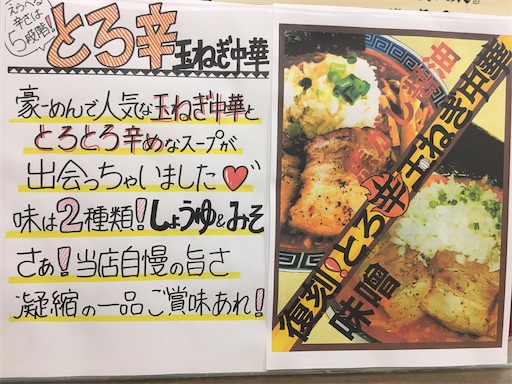 えらべる
辛さは
5段階!
とろ辛
玉ねぎ中華
豪ーめんで人気な玉ねぎ中華と
とろとろ辛めなスープが
出会っちゃいました♥
味は2種類!しょうゆ&みそ
さぁ!当店自慢の旨さ
凝縮の一品ご賞味あれ!
醤油
復刻!とろ辛玉ねぎ中華
味噌